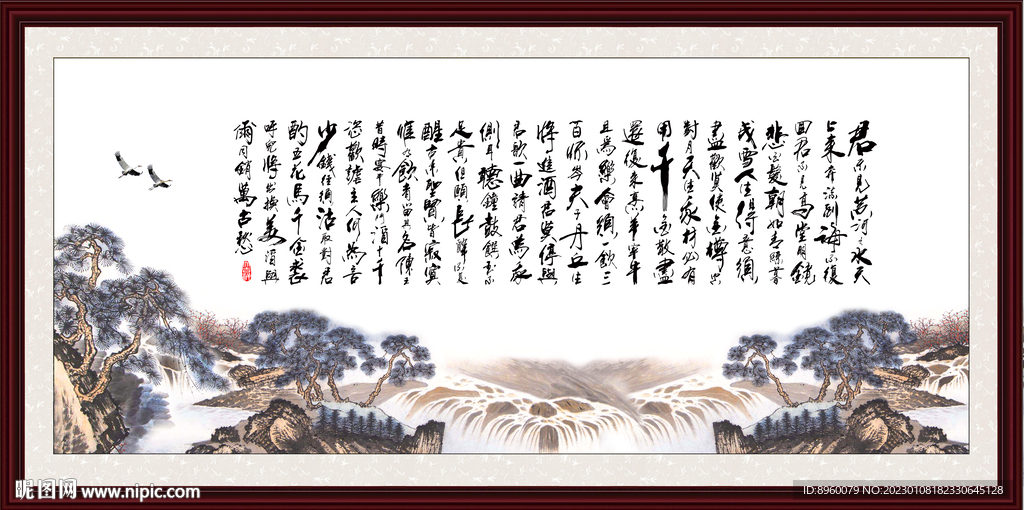 君不見黃河之水天
上來奔流到海不復
回君不見高堂明鏡
悲白髮朝如青絲暮
成雪人生得意須
盡歡莫使金樽空
對月天生我材必有
用千金散盡
還復來烹羊宰牛
且為樂會須一飲三
百杯岑夫子丹丘生
將進酒君莫停與
君歌一曲請君為我
側耳聽鐘鼓饌玉不
足貴但願長醉不復
醒古來聖賢皆寂寞
惟有飲者留其名陳王
昔時宴平樂酒斗十千
恣歡謔主人何為言
少錢徑須沽取對君
酌五花馬千金裘
呼兒將出換美酒與
爾同銷萬古愁
昵图网 www.nipic.com
ID:8960079 NO:20230108182330645128